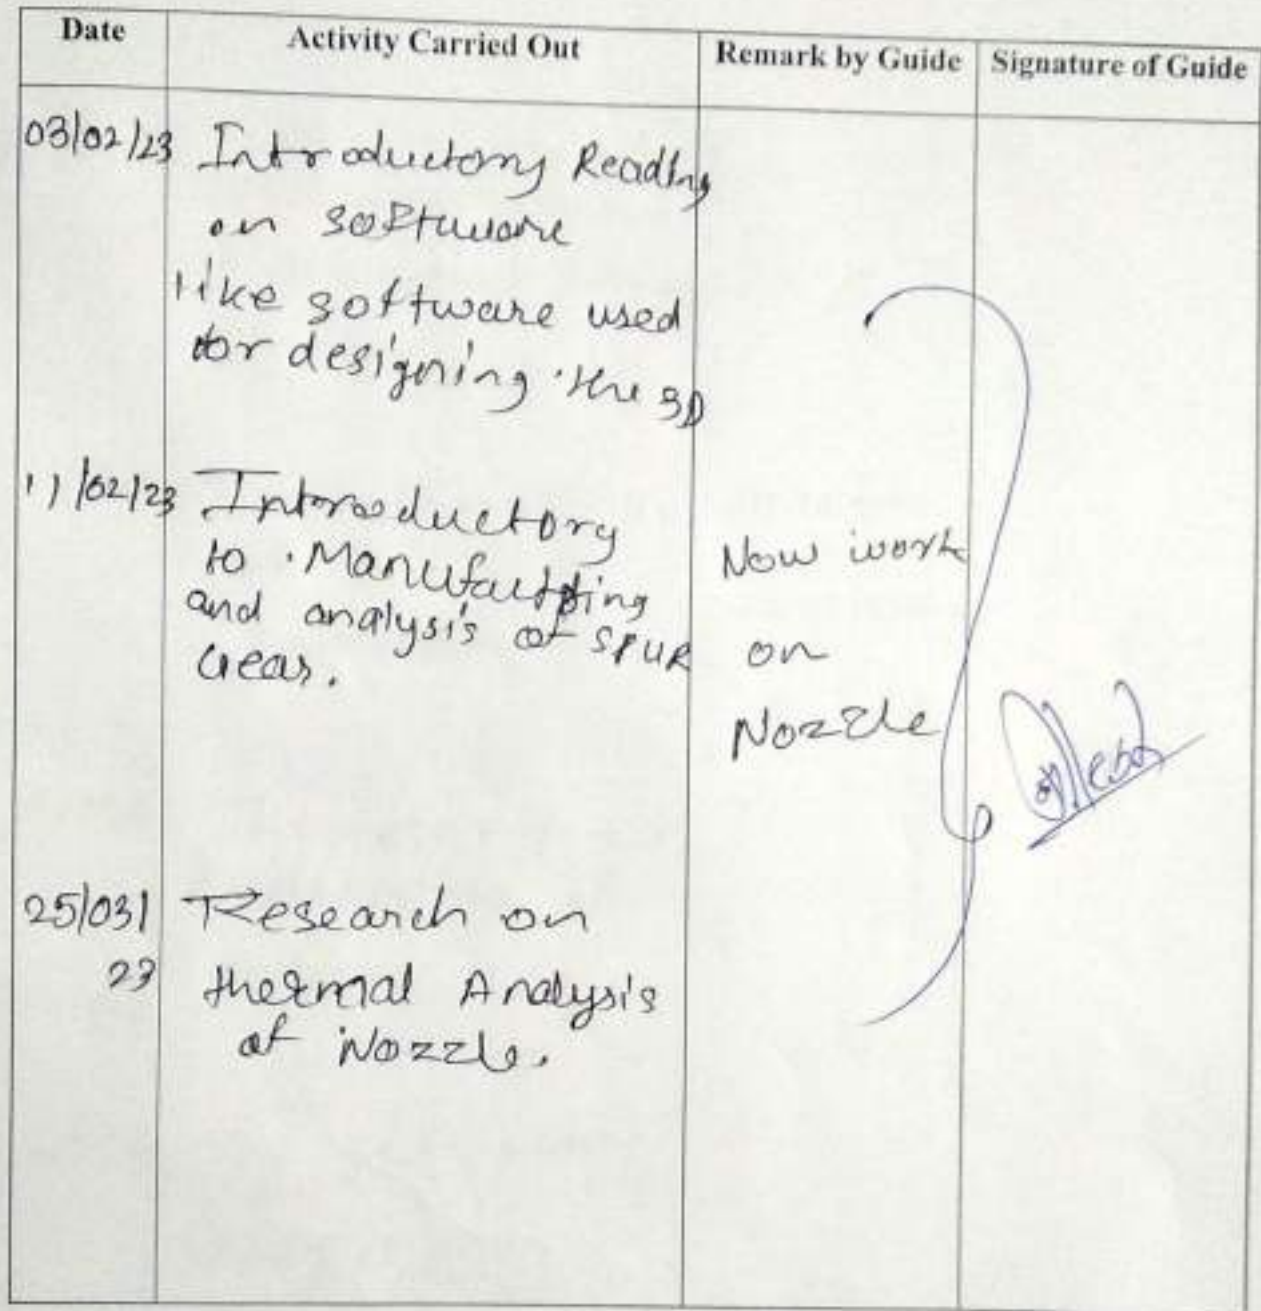 Date Activity Carried Out Remark by Guide Signature of Guide
03/02/23 Introductory Reading
on software
like software used
for designing the 3D
11/02/23 Introductory
to Manufacturing
and analysis of SPUR
Gear.
Now work
on
Nozzle
25/03/
23
Research on
thermal Analysis
of Nozzle.